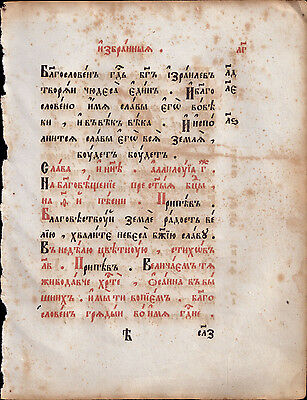 и҆збранныѧ . л҃г
Благословенъ гд҇ь бг҃ъ і҆зраилевъ л҃д
творѧи чюдеса є҆динъ . И҆ бл҃го л҃е
словено и҆мѧ славы є҆гѡ вовѣ
ки , и҆ въвѣкъ вѣка . И҆ испо л҃ѕ
лнитсѧ славы є҆гѡ всѧ землѧ ,
боудетъ боудетъ .
Слава , и҆ нн҃ѣ . а҆ллилоуїа г҃ .
На благовѣщение прест҃ыѧ бц҃ы
на ѳ҃ и҆ пѣсни : Припѣвъ .
Благовѣствуй земле радость ве
лїю , хвалите небеса бж҃їю славу .
В недѣлю цвѣтную , стихѡвъ
л҃в . Припѣвъ . Величаемъ тѧ
живодавче хрт҃е , ѡ҆санна въ вы
шнихъ . и҆ мы ти вопїемъ , бл҃го
словенъ грѧдыи во и҆мѧ гд҇не .